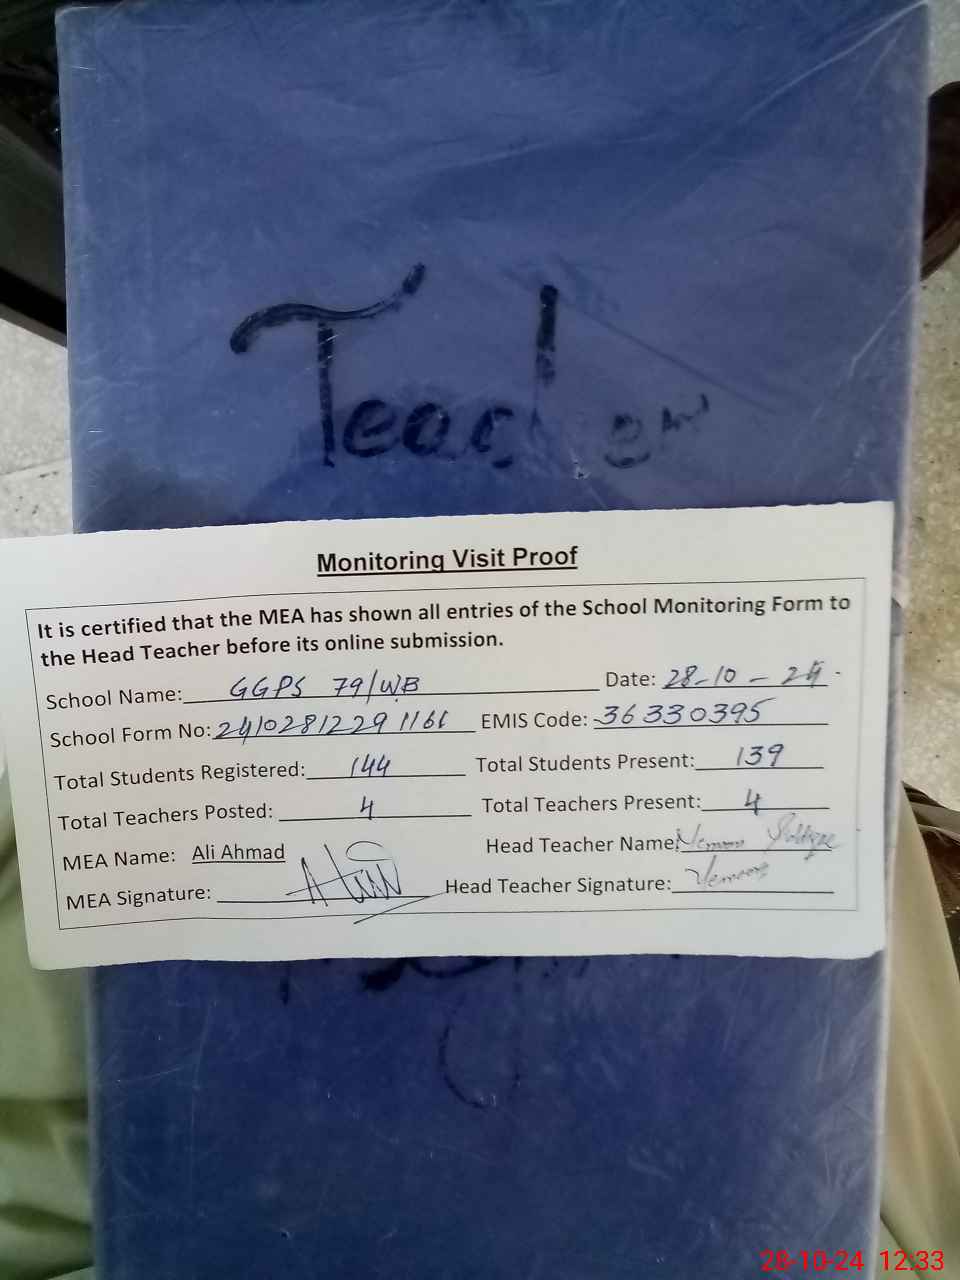 Teacher
Monitoring Visit Proof
It is certified that the MEA has shown all entries of the School Monitoring Form to
the Head Teacher before its online submission.
School Name: GGPS 79/WB Date: 28-10-24
School Form No: 241028122911 EMIS Code: 36330395
Total Students Registered: 144 Total Students Present: 139
Total Teachers Posted: 4 Total Teachers Present: 4
MEA Name: Ali Ahmad Head Teacher Name:
MEA Signature: Head Teacher Signature:
28-10-24 12:33